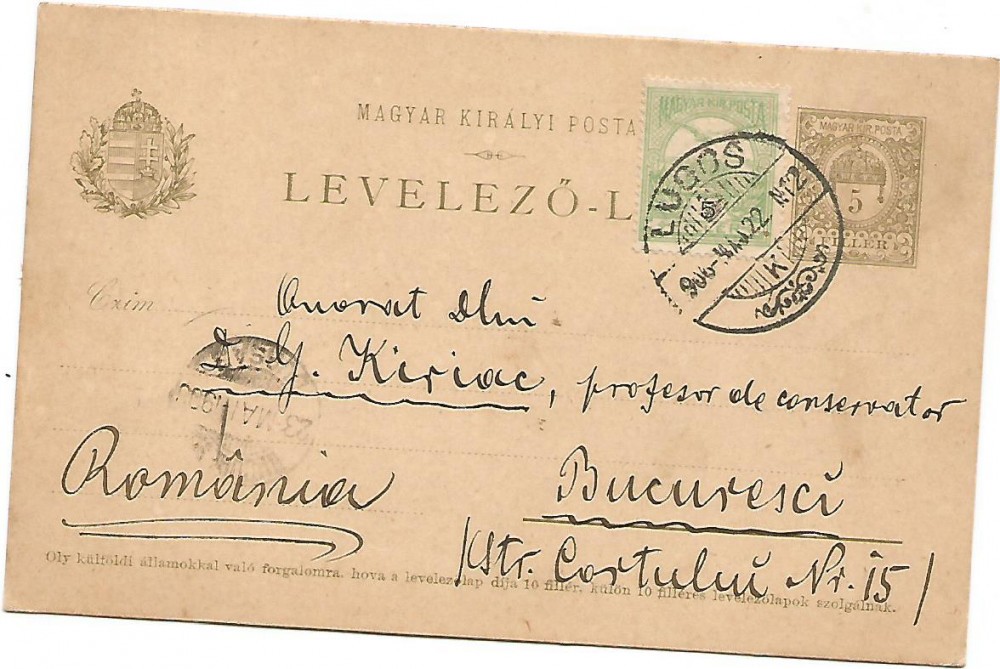 MAGYAR KIRÁLYI POSTA
LEVELEZŐ-L
MAGYAR KIR. POSTA
MAGYAR KIR. POSTA
5
FILLÉR
LUGOS
906
22
N12
K
Czim
Onorat Dlui
D. G. Kiriac, profesor de conservator
23 MA
România
Bucuresci
/Str. Cortului Nr. 15/
Oly külföldi államokkal való forgalomra, hova a levelezőlap díja 10 fillér, külön 10 filléres levelezőlapok szolgálnak.